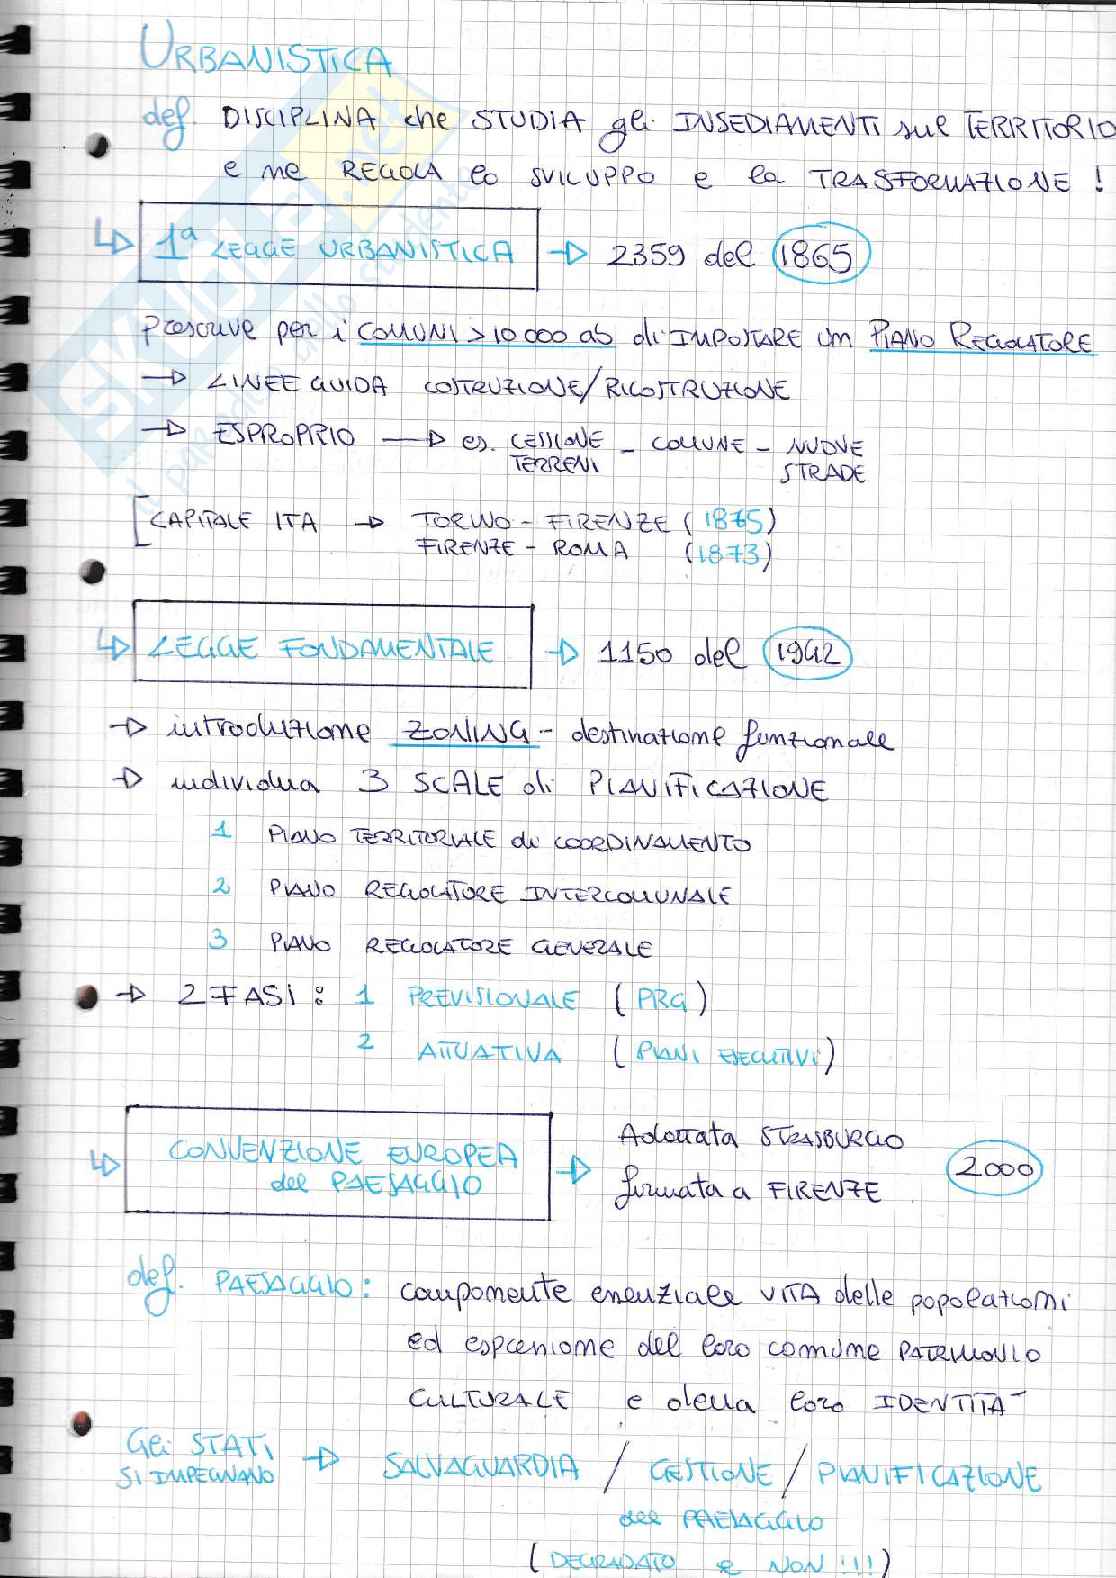 URBANISTICA
def. DISCIPLINA che STUDIA gli INSEDIAMENTI sul TERRITORIO
e ne REGOLA lo SVILUPPO e la TRASFORMAZIONE !
1ª LEGGE URBANISTICA → 2359 del 1865
Prescrive per i COMUNI > 10 000 ab di IMPOSTARE un PIANO REGOLATORE
→ LINEE GUIDA COSTRUZIONE/RICOSTRUZIONE
→ ESPROPRIO → es. CESSIONE TERRENI - COMUNE - NUOVE STRADE
CAPITALE ITA → TORINO - FIRENZE (1865)
FIRENZE - ROMA (1873)
LEGGE FONDAMENTALE → 1150 del 1942
→ introduzione ZONING - destinazione funzionale
→ individua 3 SCALE di PIANIFICAZIONE
1 PIANO TERRITORIALE di COORDINAMENTO
2 PIANO REGOLATORE INTERCOMUNALE
3 PIANO REGOLATORE GENERALE
→ 2 FASI : 1 PREVISIONALE (PRG)
2 ATTUATIVA (PIANI ESECUTIVI)
CONVENZIONE EUROPEA del PAESAGGIO → Adottata STRASBURGO
firmata a FIRENZE 2000
def. PAESAGGIO : componente essenziale VITA delle popolazioni
ed espressione del loro comune PATRIMONIO
CULTURALE e della loro IDENTITÀ
Gli STATI SI IMPEGNANO → SALVAGUARDIA / GESTIONE / PIANIFICAZIONE
del PAESAGGIO
(DEGRADATO e NON !!!)